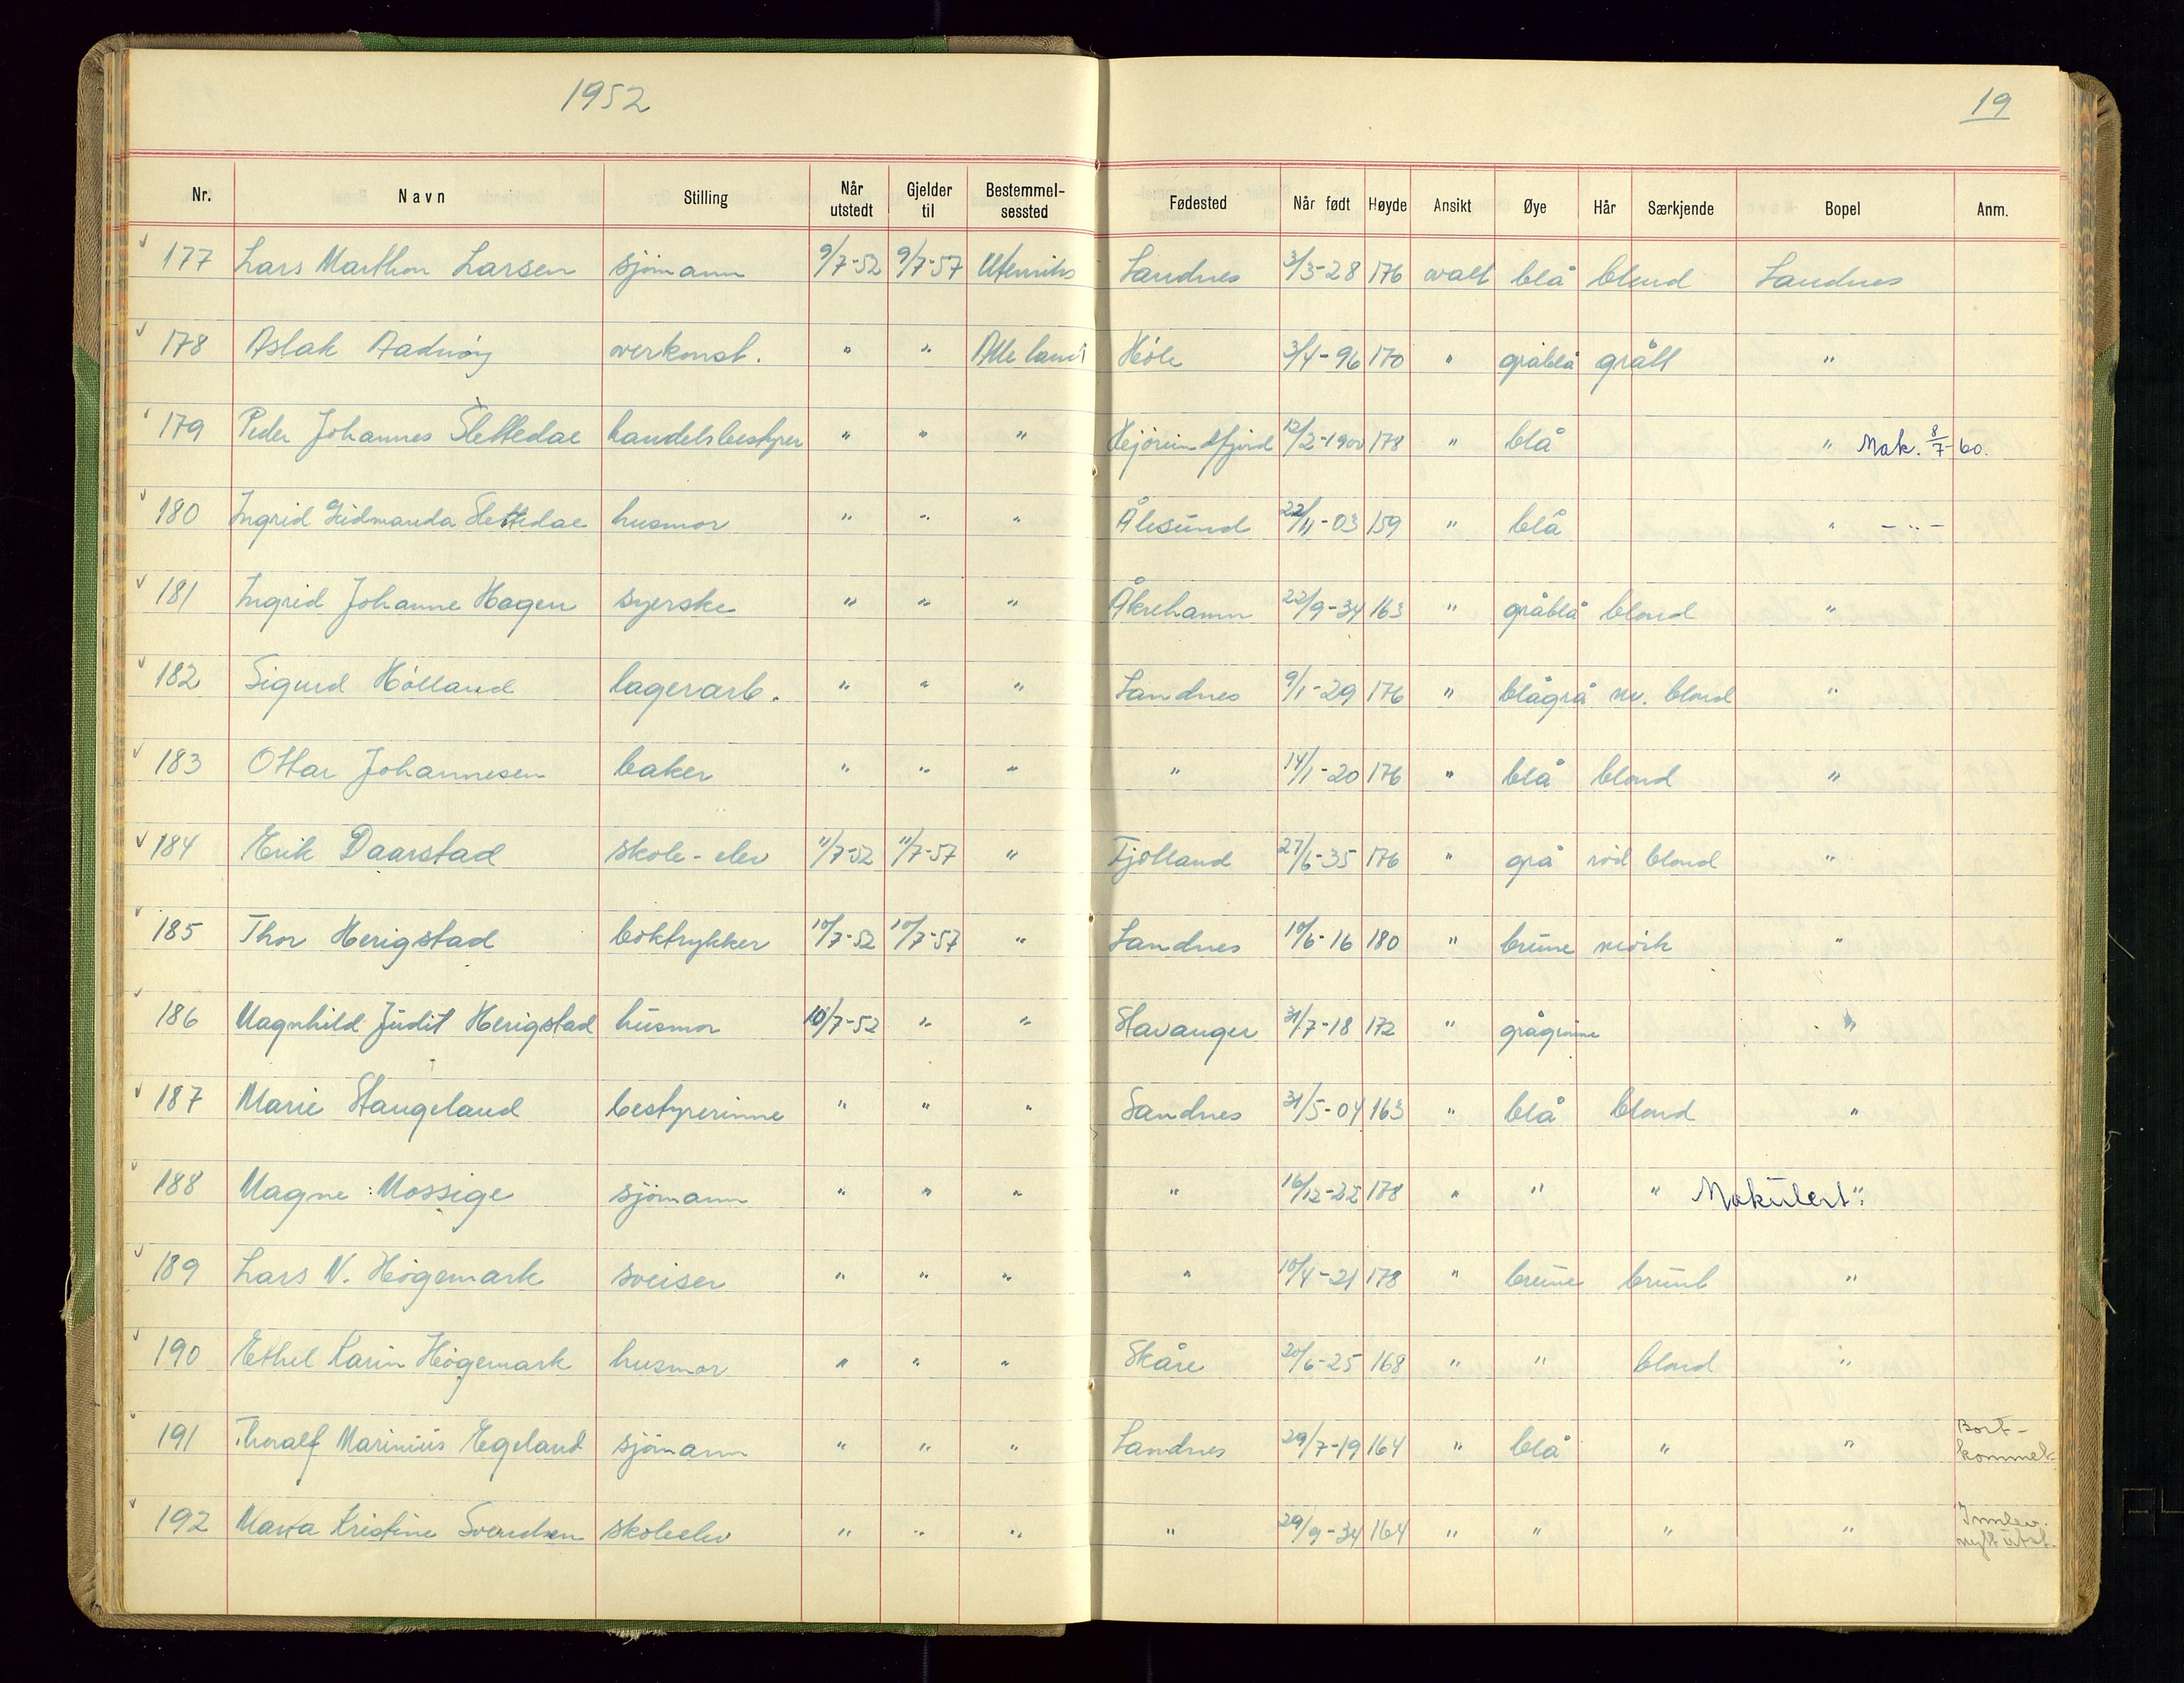 1952
19
Nr. Navn Stilling Når utstedt Gjelder til Bestemmelsessted Fødested Når født Høyde Ansikt Øye Hår Særkjende Bopel Anm.
177 Lars Marthon Larsen sjömann 9/7-52 9/7-57 Utenriks Sandnes 3/3-28 176 ovalt blå blond Sandnes
178 Aslak Aadnöy verkonst. " " Alle land Höle 3/4-96 170 " gråblå grått "
179 Peder Johannes Slettedal handelsbestyrer " " " 12/2-1900 178 " blå " Mak. 8/7-60.
180 Ingrid Slettedal husmor " " " Ålesund 22/11-03 159 " blå " — " —
181 Ingrid Johanne Hagen syerske " " " Åkrehamn 22/9-34 163 " gråblå blond "
182 Sigurd Hölland lagerarb. " " " Sandnes 9/1-29 176 " blågrå m. blond "
183 Ottar Johannesen baker " " " " 14/1-20 176 " blå blond "
184 Erik Daarstad skole-elev 11/7-52 11/7-57 " Fjotland 27/6-35 176 " grå röd blond "
185 Thor Herigstad boktrykker 10/7-52 10/7-57 " Sandnes 10/6-16 180 " brune mörk "
186 Magnhild Judit Herigstad husmor 10/7-52 " " Stavanger 31/7-18 172 " "
187 Marie Stangeland bestyrerinne " " " Sandnes 31/5-04 163 " blå blond "
188 Magne Mossige sjömann " " " " 16/12-22 178 " " " Makulert "
189 Lars N. Högemark sveiser " " " " 10/4-21 178 " brune brunt "
190 Ethel Karin Högemark husmor " " " Skåre 20/6-25 168 " " blond "
191 Thoralf Marinius Egeland sjömann " " " Sandnes 29/7-19 164 " blå " " Bort-
kommet.
192 Marta Kristine Svendsen skoleelev " " " " 29/9-34 164 " " " " Innlev.
nytt utst.